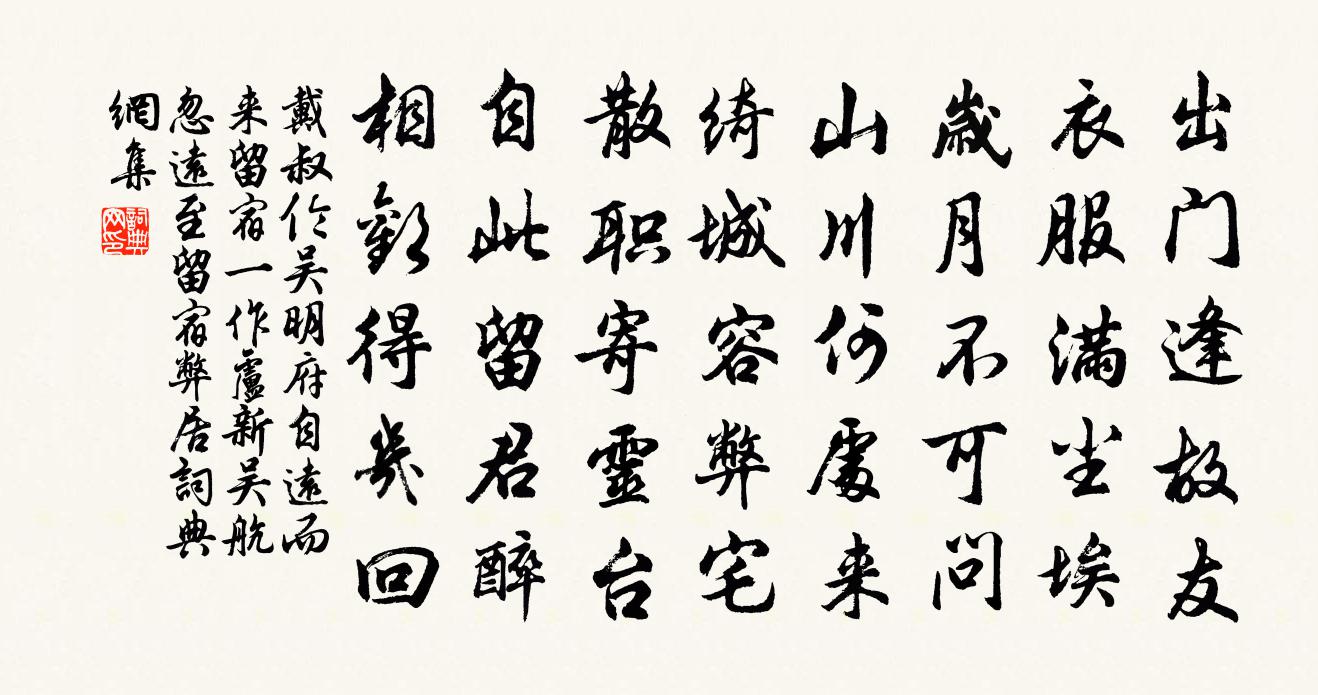 出门逢故友
衣服满尘埃
歲月不可問
山川何處来
绮城容弊宅
散职寄靈台
自此留君醉
相歡得幾回
戴叔伦吴明府自遠而
来留宿一作盧新吴航
忽遠至留宿弊居詞典
網集
詞典
网印